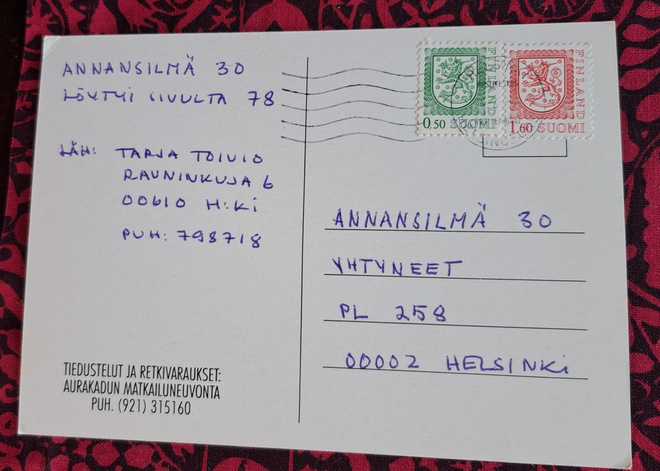 ANNANSILMÄ 30
LÖYTYI SIVULTA 78
LÄH: TARJA TOIVIO
RAUNINKUJA 6
00610 H:KI
PUH: 798718
TIEDUSTELUT JA RETKIVARAUKSET:
AURAKADUN MATKAILUNEUVONTA
PUH. (921) 315160
FINLAND
0,50 SUOMI
FINLAND
1,60 SUOMI
ANNANSILMÄ 30
YHTYNEET
PL 258
00002 HELSINKI